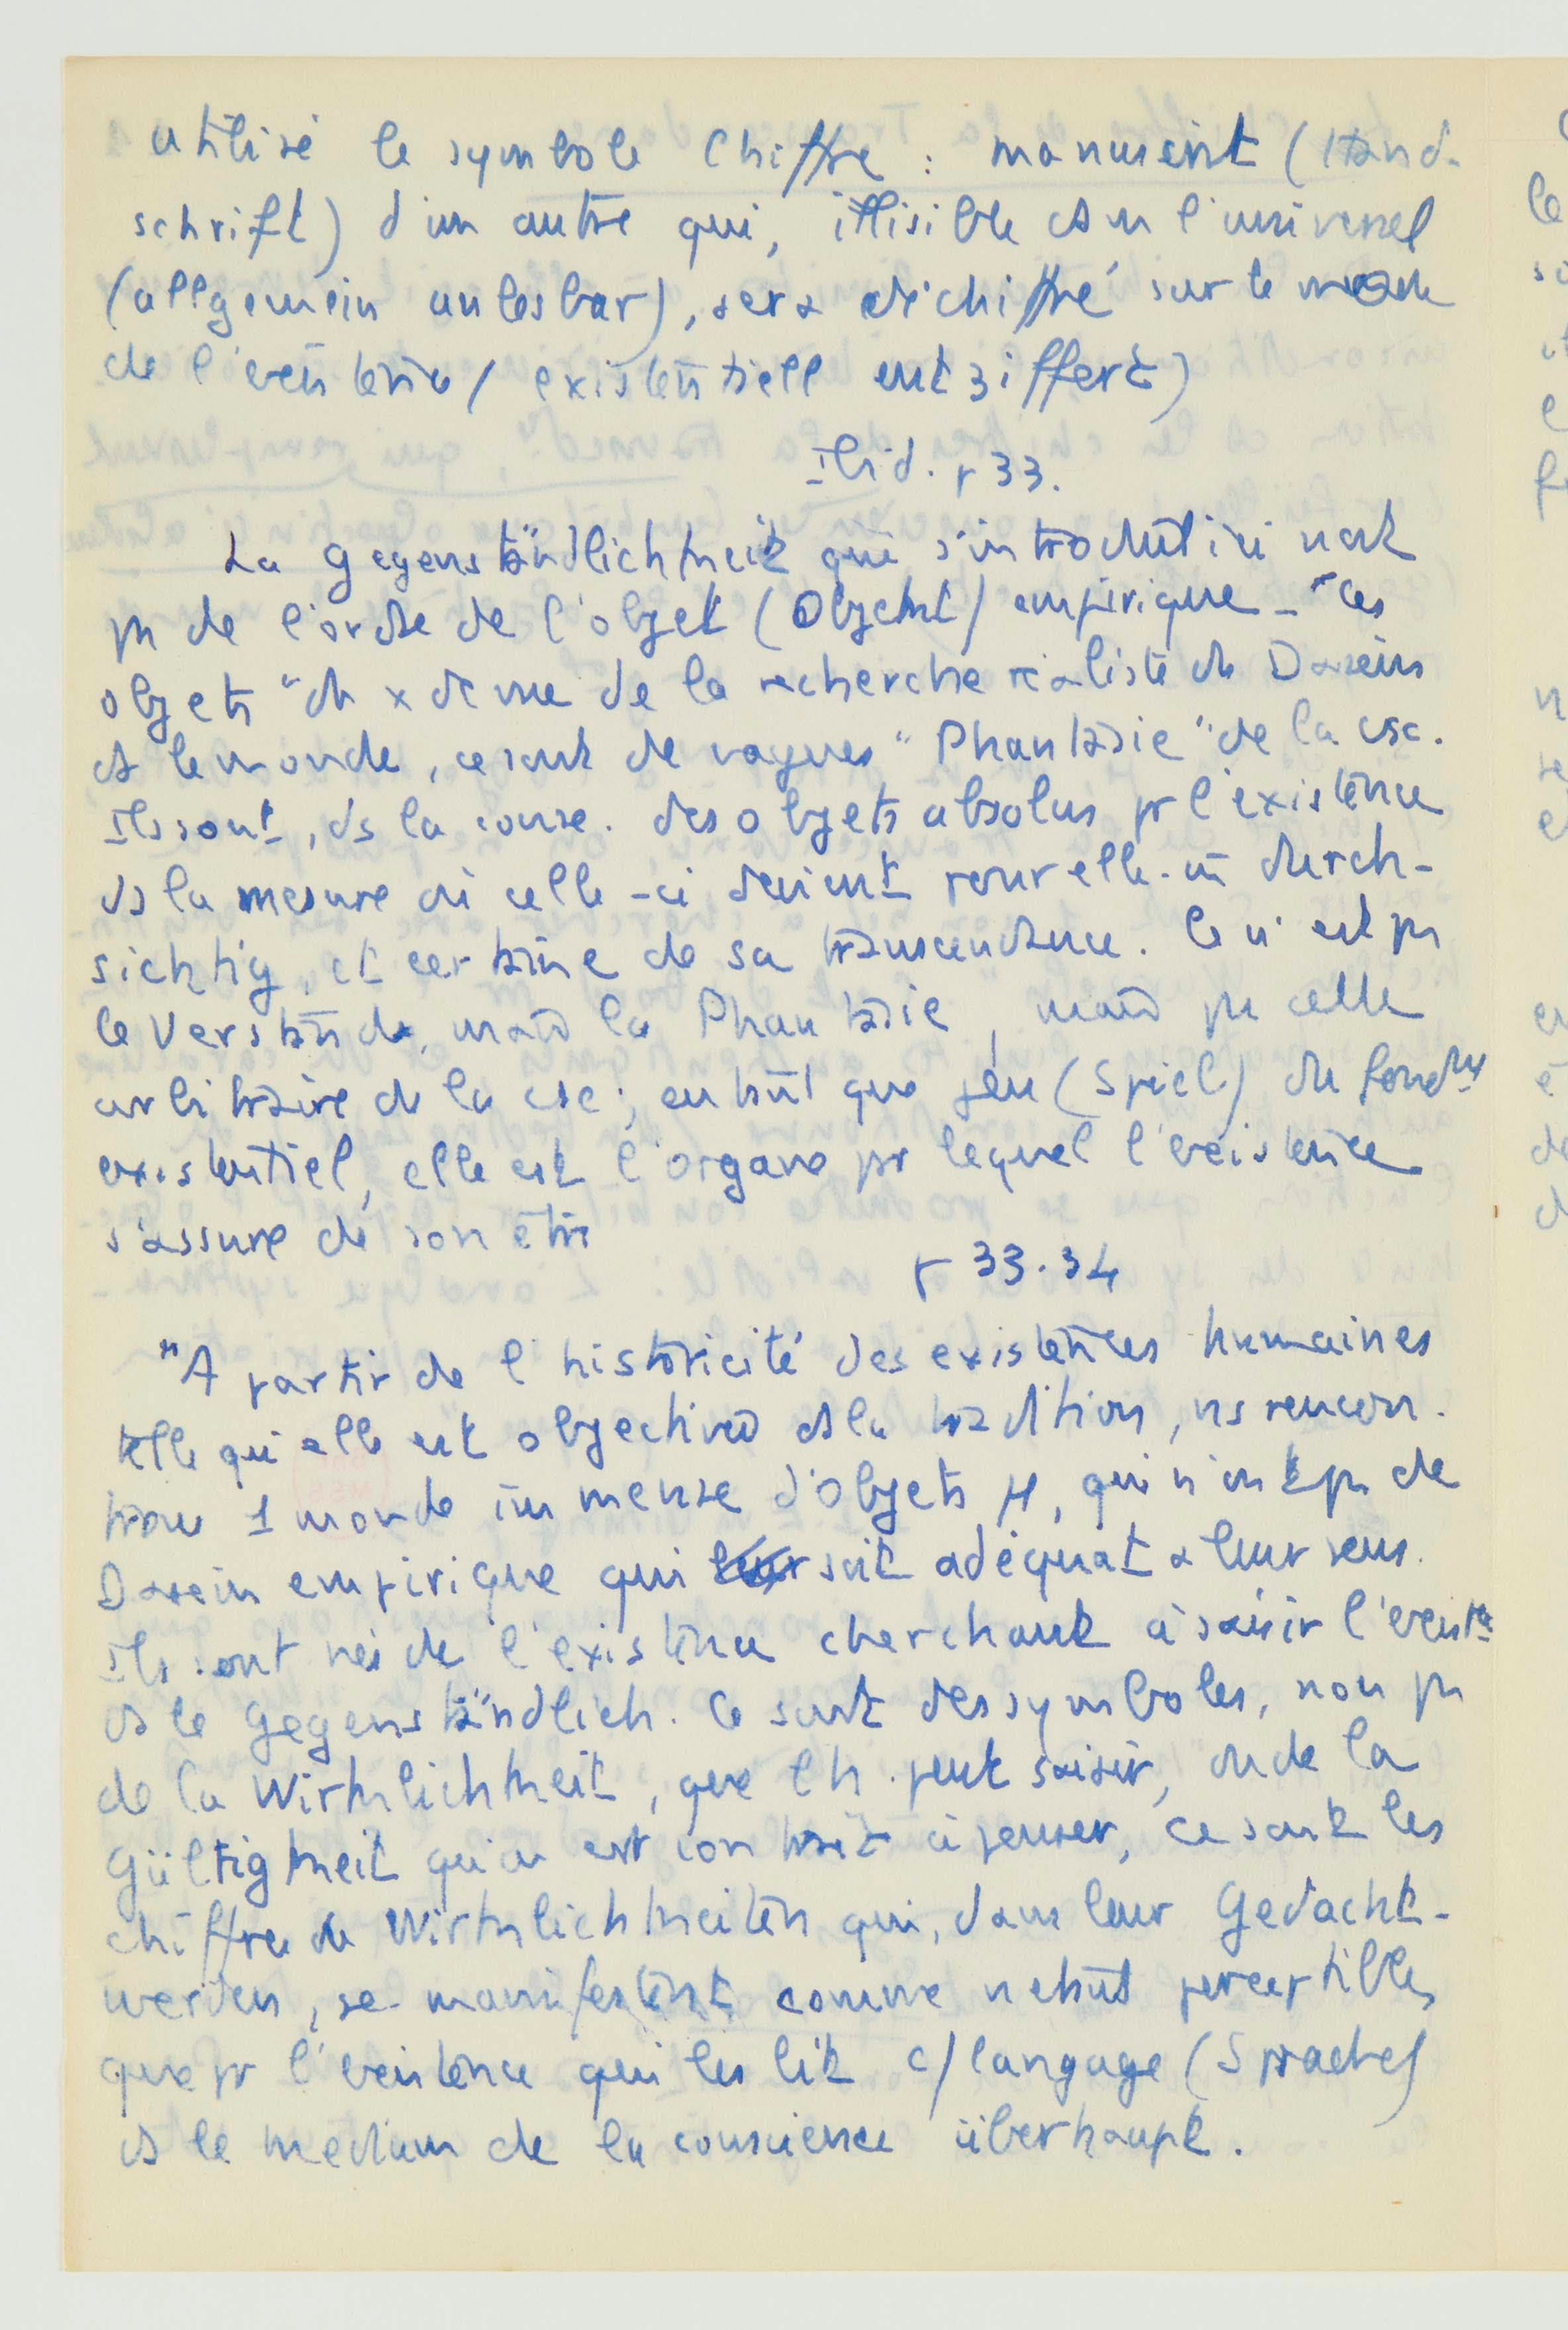 utilisé le symbole Chiffre : manuscrit (Hand-
schrift) d'un autre qui, illisible ds l'universel
(allgemein unlesbar), sera déchiffré sur le mode
de l'existence (existentiell entziffert)
Ibid. p 33.
La Gegenständlichkeit qui s'introduit ici n'est
pas de l'ordre de l'objet (Objekt) empirique - "Ces
objets" du x de vue de la recherche réaliste du Dasein
ds le monde, ce sont de vagues "Phantasie" de la csc.
Ils sont, ds la course. des objets absolus pr l'existence
ds la mesure où celle-ci devient pour elle-m̄ durch-
sichtig, et certaine de sa transcendance. Ce n'est pas
le Verstand, mais la Phantasie, mais pas celle
arbitraire de la csc; en tant que jeu (Spiel) du fondmt
existentiel, elle est l'organe par lequel l'existence
s'assure de son être
p 33.34
"A partir de l'historicité des existences humaines
telle qu'elle est objectivée ds la tradition, ns rencon-
trons 1 monde immense d'objets φ, qui n'ont pas de
Dasein empirique qui soit adéquat à leur sens.
Ils sont nés de l'existence cherchant à saisir l'existce
ds le Gegenständlich. Ce sont des symboles, non pas
de la Wirklichkeit, que l'h. peut saisir, ou de la
Gültigkeit qu'on est contraint à penser, ce sont les
chiffres de Wirklichkeiten qui, dans leur Gedacht-
werden, se manifestent comme n'étant perceptibles
que pr l'existence qui les lit c/ langage (Sprache)
ds le medium de la conscience überhaupt.